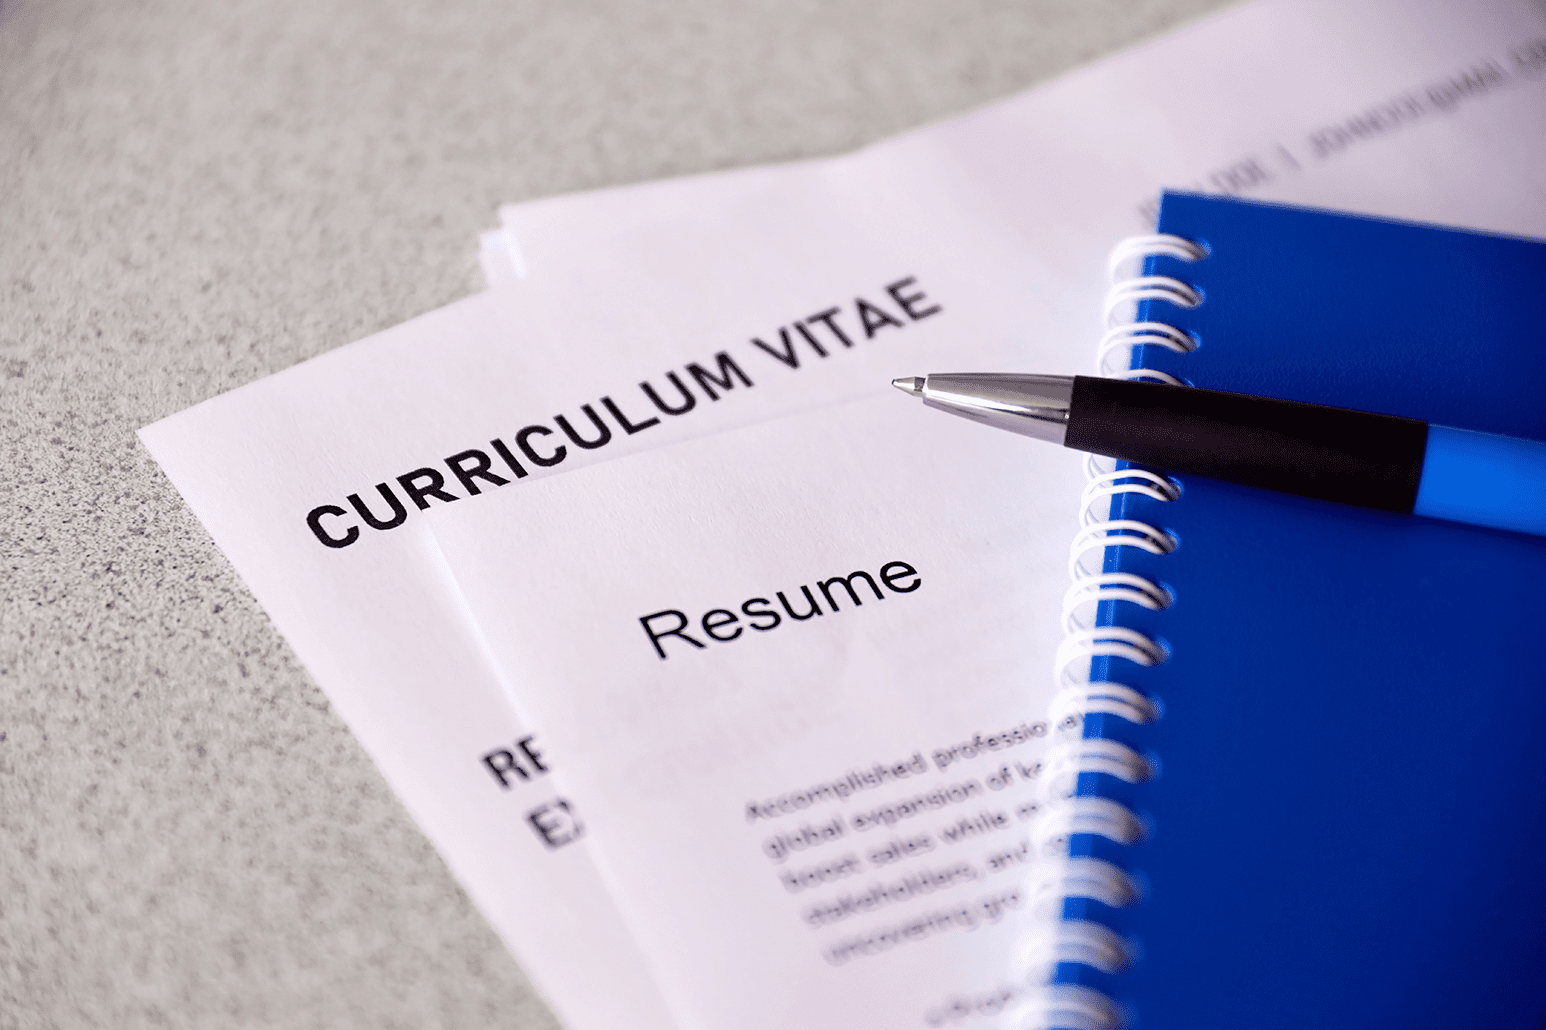 DOE | JOHNDOE@MAIL.CO
CURRICULUM VITAE
Resume
RE
EX
Accomplished professional
global expansion of ke
boost sales while m
stakeholders, and
uncovering gro